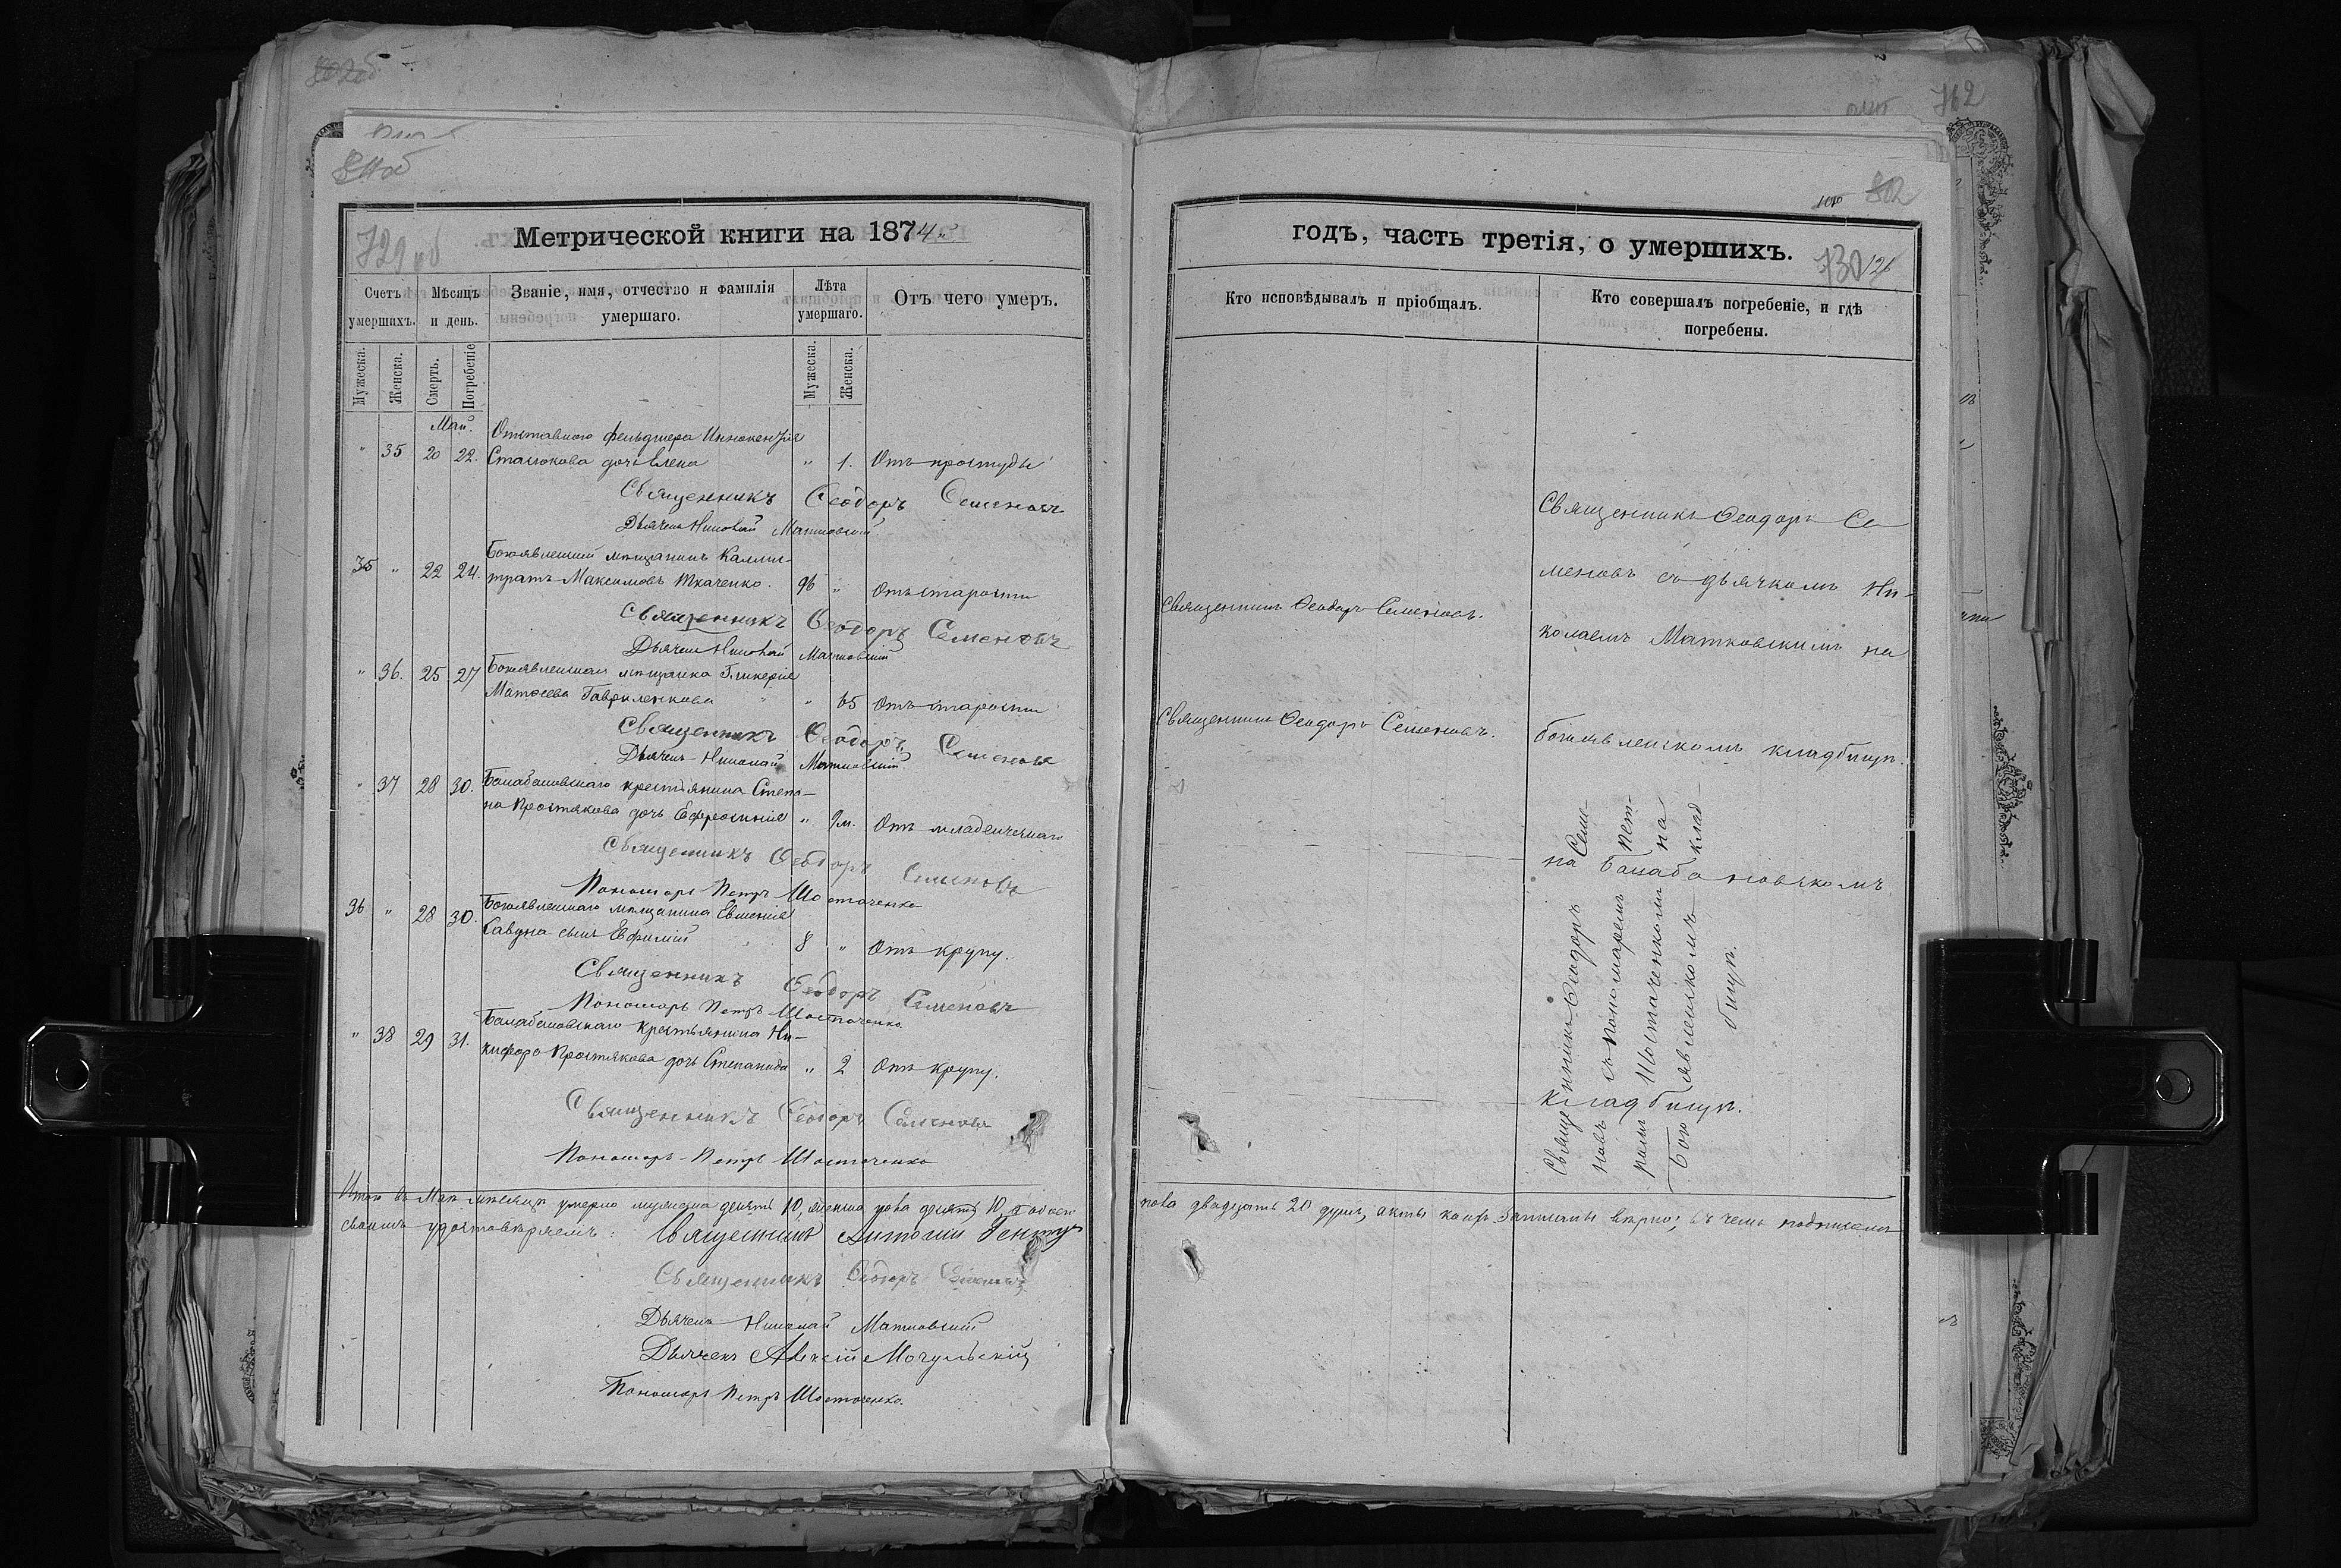 729 об
Метрической книги на 1874й
Счетъ умершихъ.
Мѣсяцъ и день.
Званіе, имя, отчество и фамилія умершаго.
Лѣта умершаго.
Отъ чего умеръ.
Мужеска.
Женска.
Смерть.
Погребеніе
Мужеска.
Женска.
Май.
Отставного фельдшера Иннокентія
" 35 20 22. Стаюкова дочь Елена " 1. Отъ простуды
Священникъ Феодоръ Семеновъ
Дьячекъ Николай Матковский
Богоявленский мѣщанинъ Каллис-
35 " 22 24. тратъ Максимовъ Ткаченко. 96 " Отъ старости
Священникъ Феодоръ Семеновъ
Дьячекъ Николай Матковский
" 36. 25 27 Богоявленская мѣщанка Гликерія
Матѳеева Гавриленкова " 65 Отъ старости
Священникъ Феодоръ Семеновъ
Дьячекъ Николай Матковский
" 37 28 30. Балабановскаго крестьянина Степа-
на Простякова дочь Ефросинія " 9м. Отъ младенческаго
Священникъ Феодоръ Семеновъ
Пономарь Петръ Шостаченко
36 " 28 30. Богоявленскаго мѣщанина Евгенія
Савуна сынъ Ефимій 8 " Отъ крупу.
Священникъ Феодоръ Семеновъ
Пономарь Петръ Шостаченко
" 38 29 31. Балабановскаго крестьянина Ни-
кифора Простякова дочь Степанида " 2 Отъ крупу.
Священникъ Феодоръ Семеновъ
Пономарь Петръ Шостаченко
Итого въ Маѣ мѣсяцѣ умерло мужеска десять 10, женска пола десять 10, а обоего
своимъ удостовѣряемъ: Священникъ Антоній
Священникъ Феодоръ Семеновъ
Дьячекъ Николай Матковский
Дьячекъ Алексій Могульскій
Пономарь Петръ Шостаченко.
802
730
126
годъ, часть третія, о умершихъ.
Кто исповѣдывалъ и пріобщалъ.
Кто совершалъ погребеніе, и гдѣ погребены.
Священникъ Феодоръ Се
меновъ съ дьячкомъ Ни-
Священникъ Феодоръ Семеновъ.
колаемъ Матковскимъ на
Священникъ Феодоръ Семеновъ.
богоявленскомъ кладбищѣ.
на Балабановскомъ
кладбищѣ.
Священникъ Феодоръ Семе-
новъ съ пономаремъ Пет-
ромъ Шостаченкомъ на
Богоявленскомъ клад-
бищѣ.
пола двадцать 20 душъ, акты коихъ записаны вѣрно; въ чемъ подписомъ
762